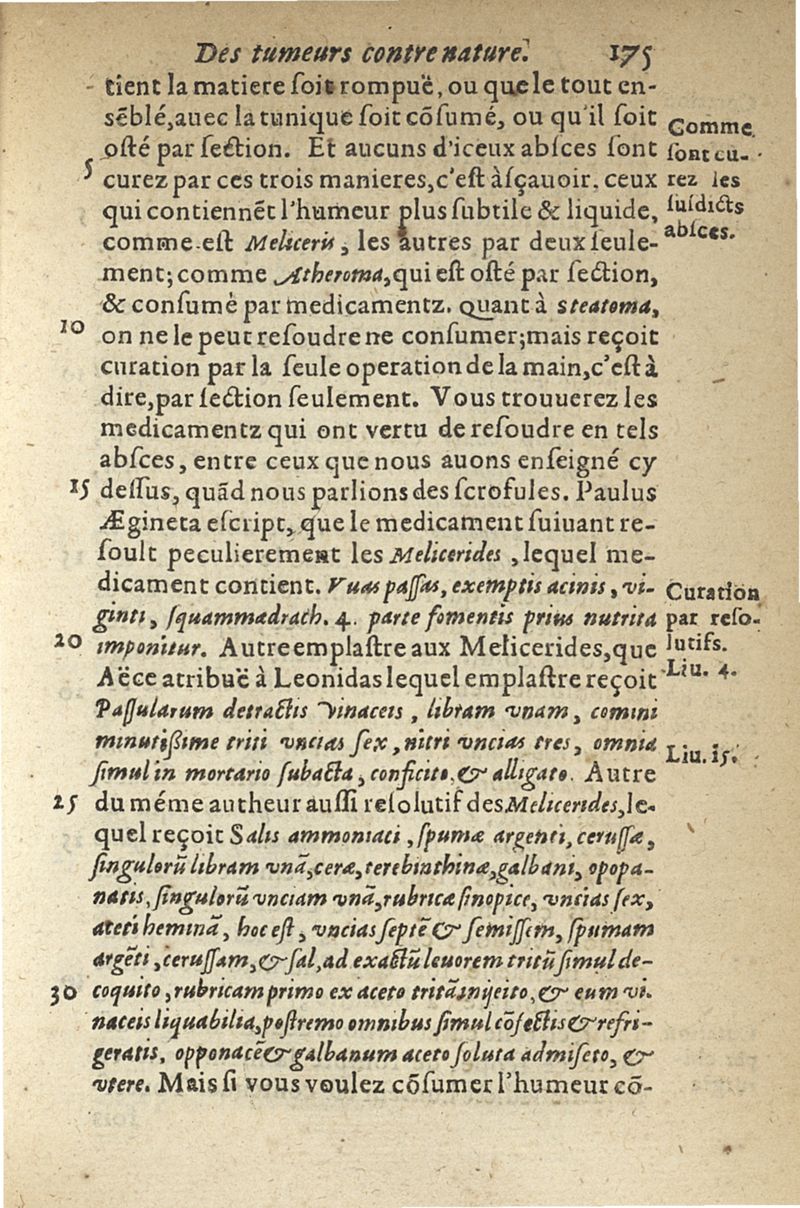 Des tumeurs contre nature. 175
tient la matiere soit rompuë, ou que le tout en-
sẽblé, auec la tunique soit cõsumé, ou qu'il soit
osté par section. Et aucuns d'iceux absces sont
5
curez par ces trois manieres, c'est àsçauoir, ceux
qui contiennẽt l'humeur plus subtile & liquide,
comme est Meliceris, les autres par deux seule-
ment; comme Atheroma, qui est osté par section,
& consumé par medicamentz. quant à Steatoma,
10
on ne le peut resoudre ne consumer; mais reçoit
curation par la seule operation de la main, c'est à
dire, par section seulement. Vous trouuerez les
medicamentz qui ont vertu de resoudre en tels
absces, entre ceux que nous auons enseigné cy
15 dessus, quãd nous parlions des scrofules. Paulus
Ægineta escript, que le medicament suiuant re-
soult peculierement les Melicerides, lequel me-
dicament contient. Vuas passas, exemptis acinis, vi-
ginti, squammæ drach. 4. parte fomentis prius nutrita
20 imponitur. Autre emplastre aux Melicerides, que
Aëce atribuë à Leonidas lequel emplastre reçoit
Passularum detractis vinaceis, libram vnam, comini
minutißime triti vncias sex, nitri vncias tres, omnia
simul in mortario subacta, conficito, & alligato. Autre
25 du méme autheur aussi resolutif des Melicerides, le-
quel reçoit Salis ammoniaci, spumæ argenti, cerussæ,
singulorũ libram vnã, ceræ, terebinthinæ, galbani, opopa-
natis, singulorũ vnciam vnã, rubricæ sinopice, vncias sex,
aceti heminã, hoc est, vncias septẽ & semissem, spumam
argẽti, cerussam, & sal, ad exactũ leuorem tritũ simul de-
30 coquito, rubricam primo ex aceto tritã inijeito, & eum vi-
naceis liquabilia, postremo omnibus simul cõfectis & refri-
geratis, opponacẽ & galbanum aceto soluta admiseto, &
vtere. Mais si vous voulez cõsumer l'humeur cõ-
Comme
sont cu-
rez les
susdicts
absces.
Curation
par reso-
lutifs.
Liu. 4.
Liu. 15.